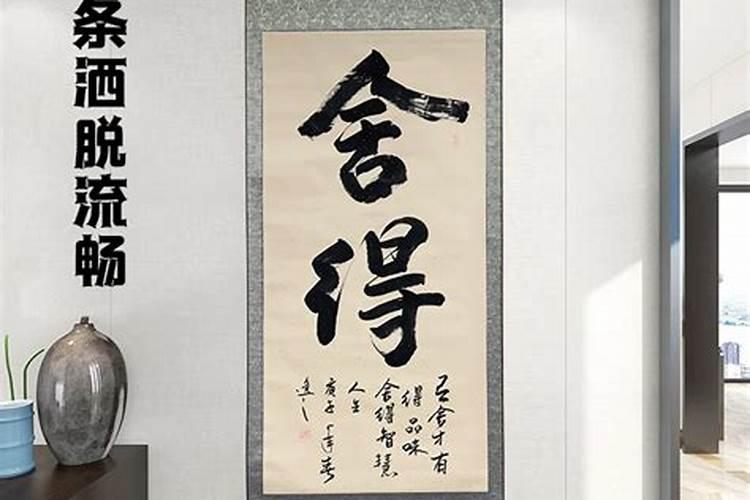 条洒脱流畅
舍得
有舍才有
得品味
舍得智慧
人生
庚子年春